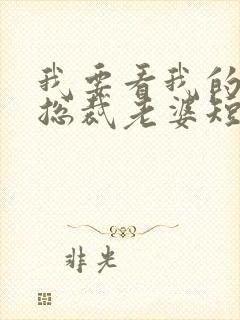 我要看我的
总裁老婆短
非光